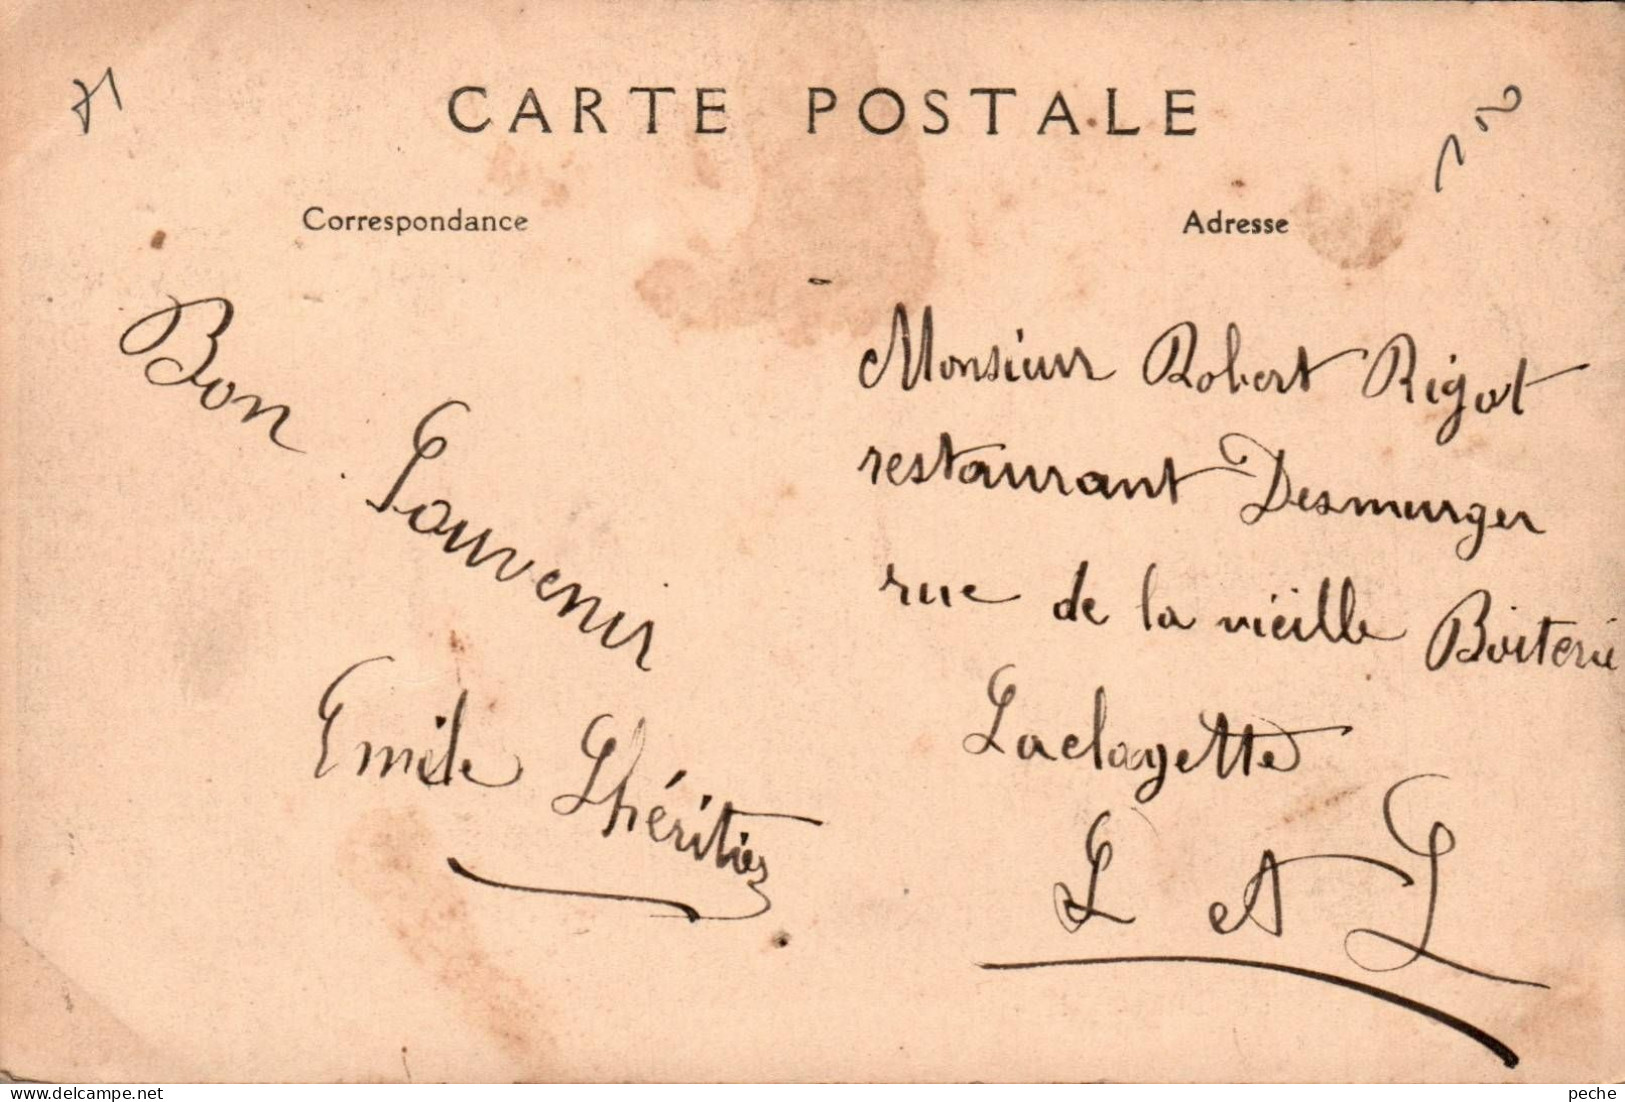 71
CARTE POSTALE
Correspondance
Adresse
Bon
Souvenir
Emile Lhéritier
Monsieur Robert Rigot
restaurant Desmurger
rue de la vieille Boiterie
Laclayette
S et L
peche